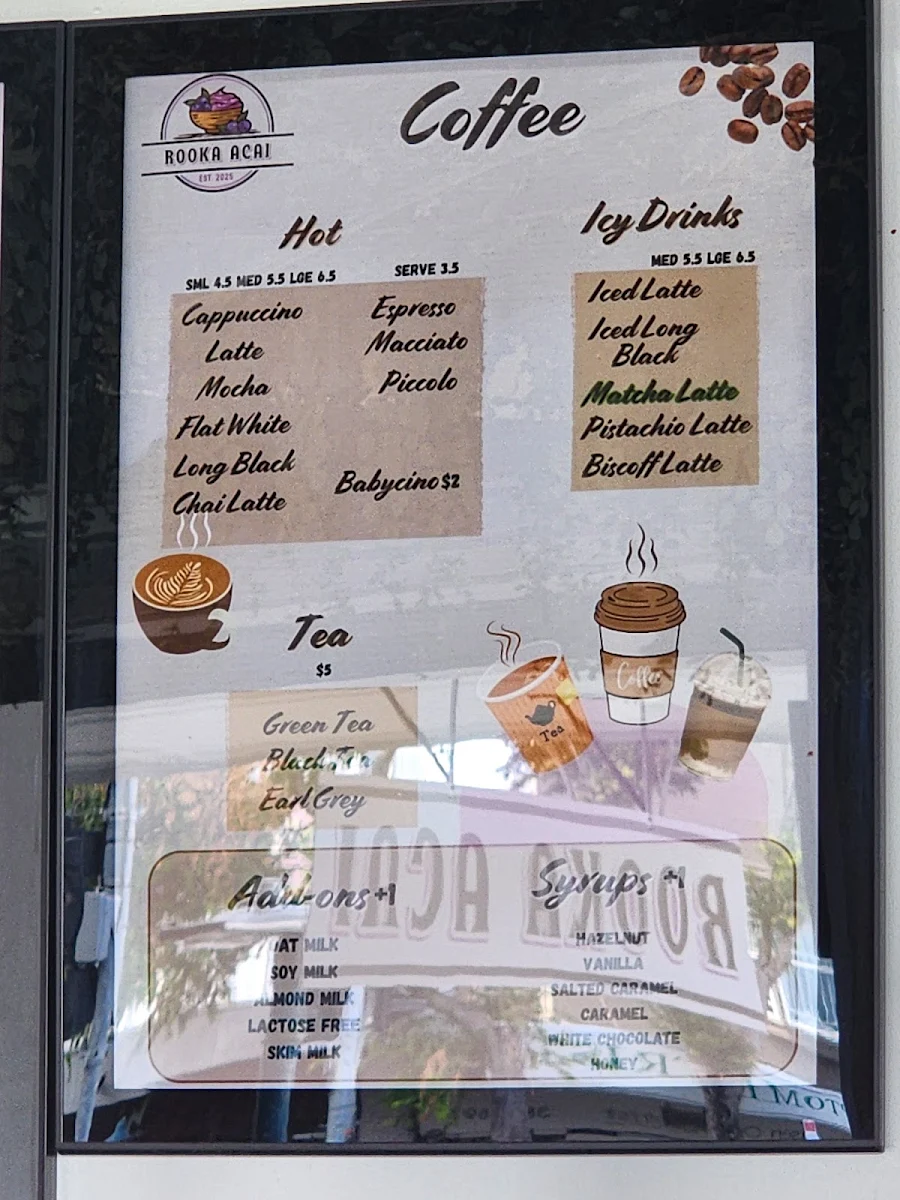 Coffee
ROOKA ACAI
EST. 2025
Hot
SML 4.5 MED 5.5 LGE 6.5
Cappuccino
Latte
Mocha
Flat White
Long Black
Chai Latte
SERVE 3.5
Espresso
Macciato
Piccolo
Babycino $2
Icy Drinks
MED 5.5 LGE 6.5
Iced Latte
Iced Long
Black
Matcha Latte
Pistachio Latte
Biscoff Latte
Tea
$5
Green Tea
Black Tea
Earl Grey
Tea
Coffee
Add-ons +1
OAT MILK
SOY MILK
ALMOND MILK
LACTOSE FREE
SKIM MILK
Syrups +1
HAZELNUT
VANILLA
SALTED CARAMEL
CARAMEL
WHITE CHOCOLATE
HONEY
ROOKA ACAI